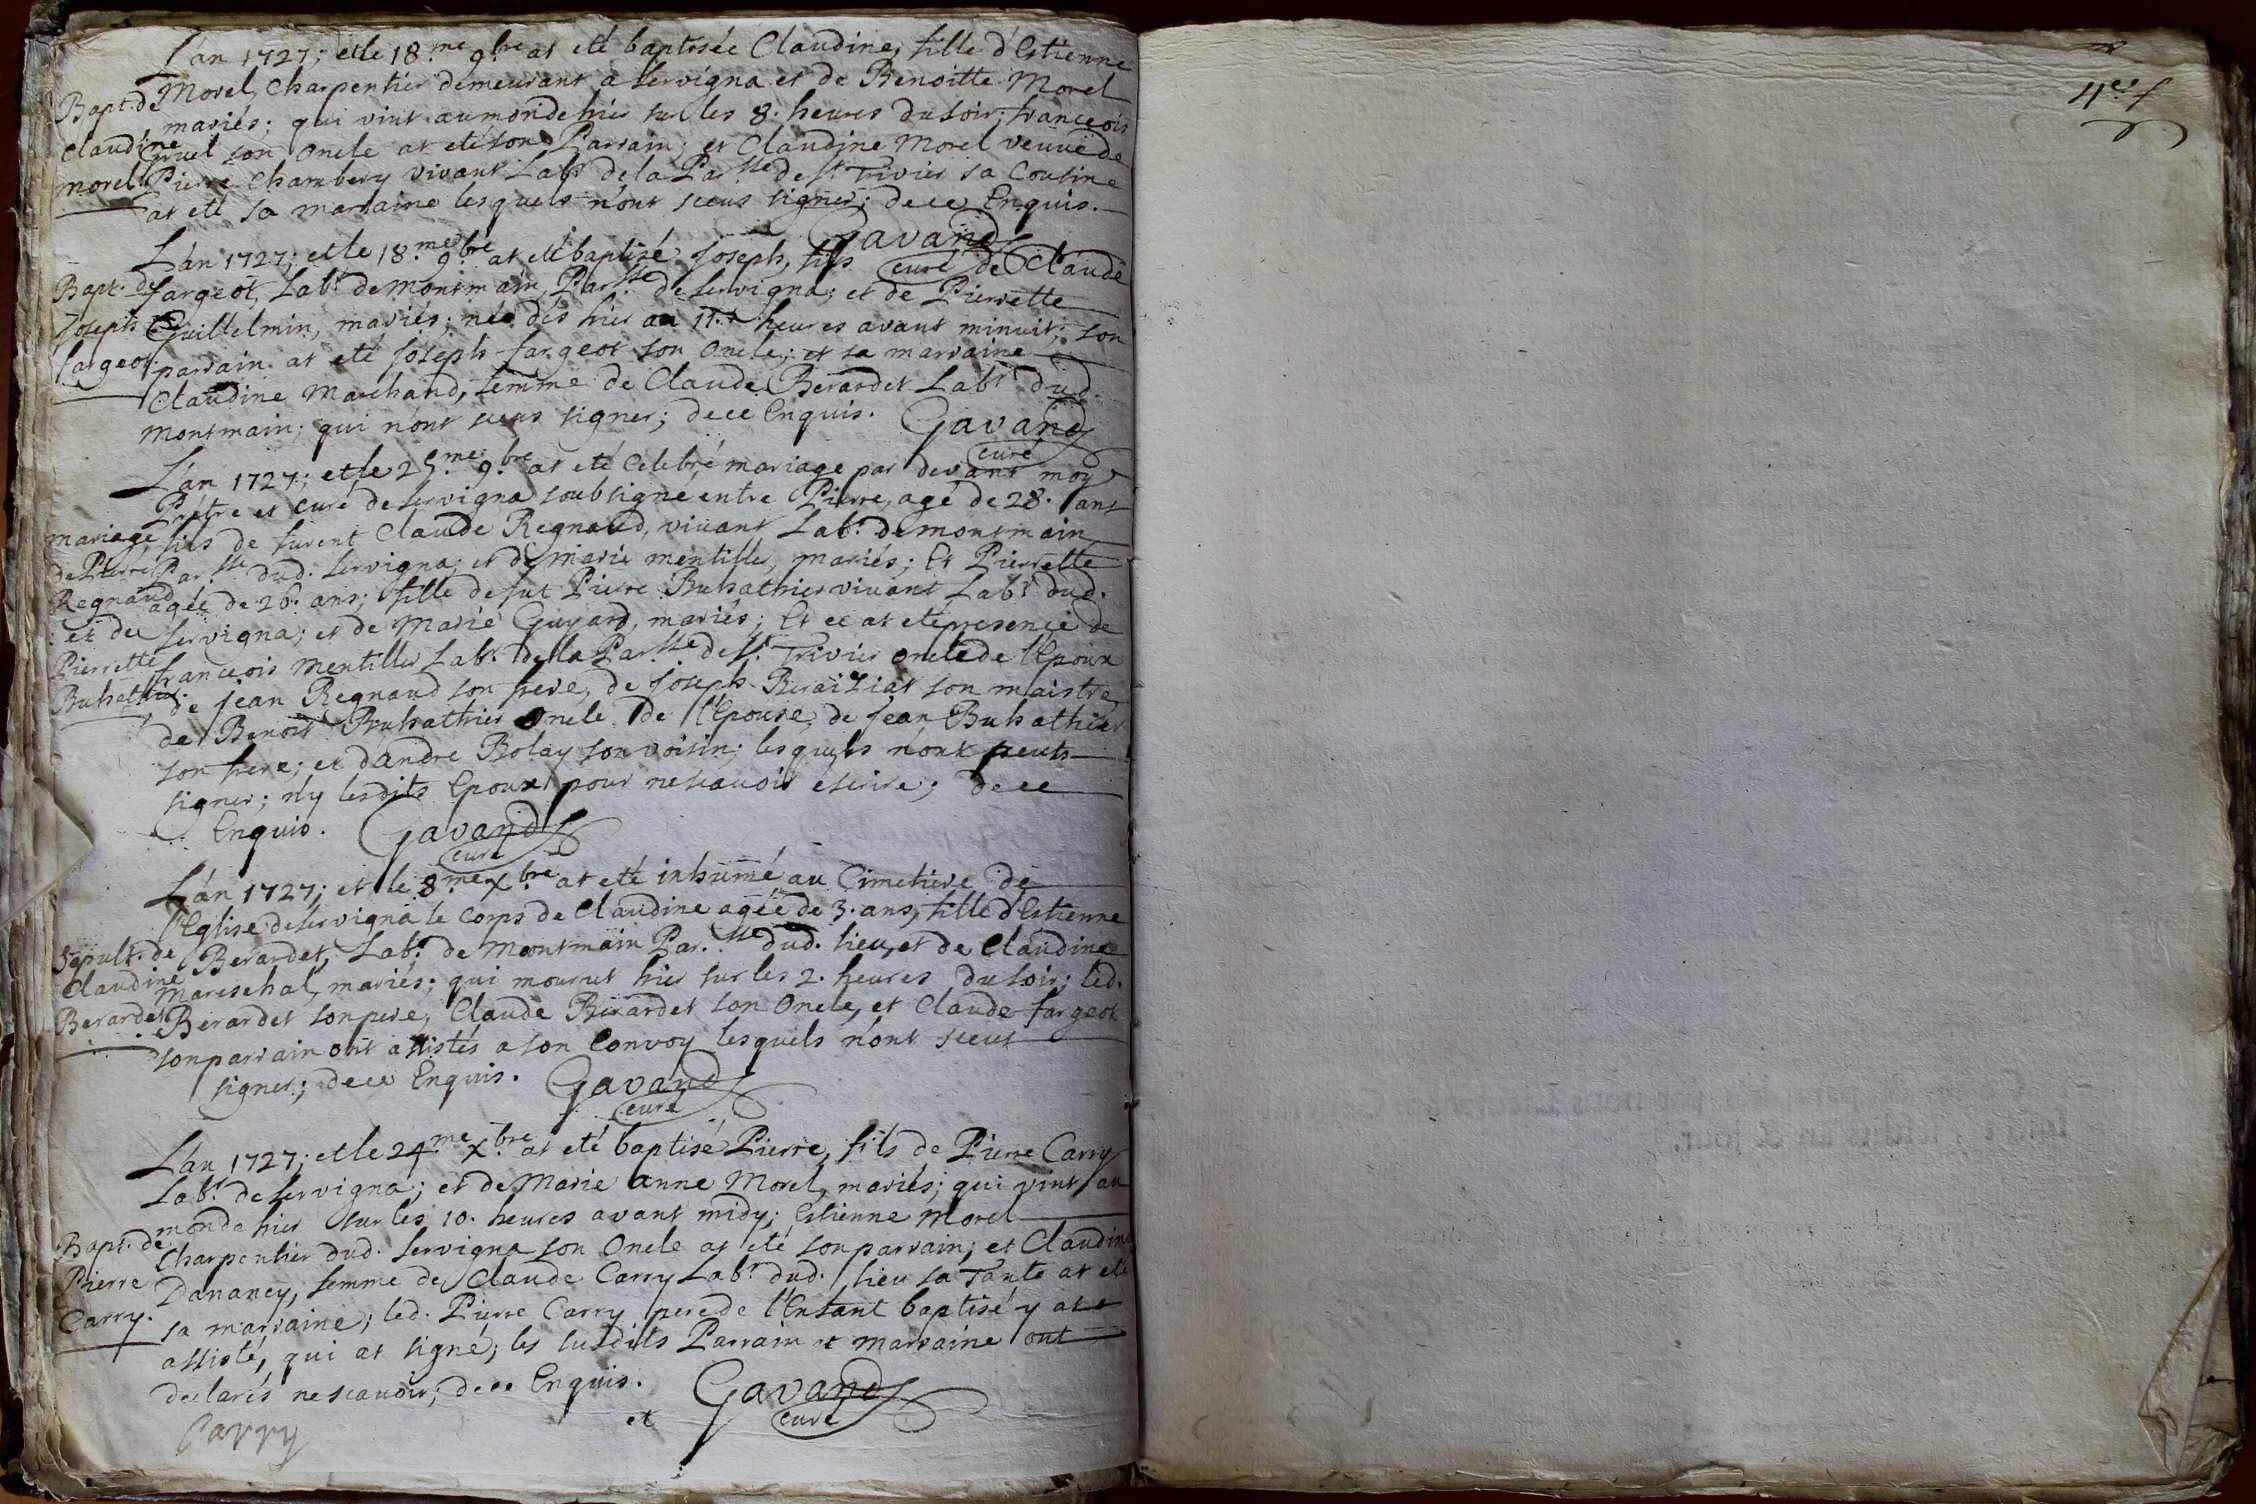 L'an 1727; et le 18.me 9.bre at eté baptisée Claudine, fille d'Estienne
Morel, Charpentier demeurant a Servigna et de Benoitte Morel
mariés; qui vint au monde hier sur les 8. heures du soir; franceois
son Oncle at eté son Parrain; et Claudine Morel veuve de
Pierre Chambery vivant Lab.r de la Par.sse de S.t Trivier sa Cousine
at eté sa marraine lesquels n'ont sceus signer; de ce Enquis.
Bapt. de
Claudine
morel
Gavand
curé
L'an 1727; et le 18.me 9.bre at eté baptisé Joseph, fils de Claude
fargeot, Lab.r de montmain, Par.sse de Servigna; et de Pierrette
Guillelmin, mariés; née dés hier au 11.e heures avant minuit; son
parrain at eté Joseph fargeot son Oncle; et sa marraine
Claudine Marchand, femme de Claude Berardet Lab.r dud.
montmain; qui n'ont sceus signer; de ce Enquis.
Bapt. de
Joseph
fargeot
Gavand
curé
L'an 1727; et le 25.me 9.bre at eté Celebré mariage par devant moy
Prêtre et curé de Servigna soubsigné entre Pierre, agé de 28. ans
fils de furent Claude Regnaud, vivant Lab.r de montmain
Par.sse dud. Servigna; et de marie mentiller, mariés; Et Pierrette
agée de 26. ans; fille de fut Pierre Buhathier vivant Lab.r dud.
Servigna; et de Marie Guyard, mariés; Et ce at eté presence de
franceois mentiller Lab.r de la Par.sse de S.t Trivier oncle de l'Epoux
de Jean Regnaud son frere, de Joseph Beraiziat son maistre,
de Benoit Buhathier Oncle de l'Epouse, de Jean Buhathier
son frere; et d'andre Bolay son voisin; lesquels n'ont peuts
signer; n'y lesdits Epoux pour ne scavoir escrire; de ce
Enquis.
mariage
de Pierre
Regnaud
et de
Pierrette
Buhathier.
Gavand
curé
L'an 1727; et le 8.me X.bre at eté inhumé au Cimetiere de
l'Eglise de Servigna le corps de Claudine agée de 3. ans, fille d'Estienne
Berardet, Lab.r de montmain Par.sse dud. lieu, et de Claudine
Mareschal, mariés; qui mourut hier sur les 2. heures du soir; led.
Berardet son pere, Claude Berardet son Oncle, et Claude fargeot
son parrain ont assistés a son Convoy lesquels n'ont sceut
signer; de ce Enquis.
Sepult. de
Claudine
Berardet
Gavand
curé
L'an 1727; et le 24.me X.bre at eté baptisé Pierre, fils de Pierre Carry
Lab.r de Servigna; et de Marie anne Morel, mariés; qui vint au
monde hier sur les 10. heures avant midy; Estienne Morel
Charpentier dud. Servigna son Oncle at eté son parrain; et Claudine
Dananey, femme de Claude Carry Lab.r dud. lieu sa Tante at eté
sa marraine; led. Pierre Carry pere de l'Enfant baptisé y at
assisté, qui at signé; les susdits Parrain et marraine ont
declarés ne scavoir; de ce Enquis.
Bapt. de
Pierre
Carry.
Gavand
et
curé
Carry